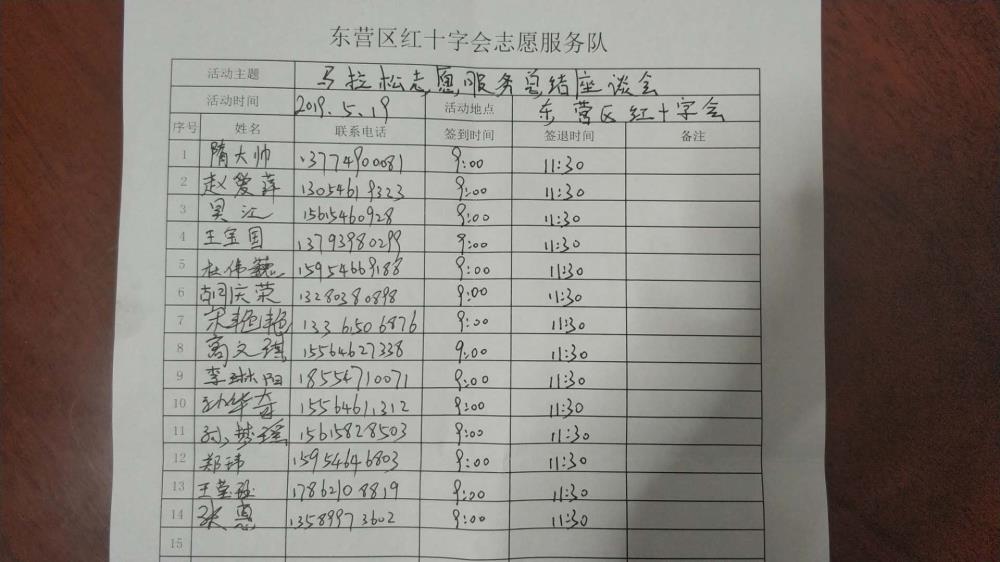 东营区红十字会志愿服务队
活动主题 马拉松志愿服务总结座谈会
活动时间 2019.5.19 活动地点 东营区红十字会
序号 姓名 联系电话 签到时间 签退时间 备注
1 隋大帅 13774900081 9:00 11:30
2 赵爱萍 13054619323 9:00 11:30
3 吴江 15615460928 9:00 11:30
4 王宝国 13793980299 9:00 11:30
5 杜伟巍 15954669188 9:00 11:30
6 胡庆荣 13280380898 9:00 11:30
7 宋艳艳 13361506876 9:00 11:30
8 高文琪 15564627338 9:00 11:30
9 李琳阳 18554710071 9:00 11:30
10 孙华奇 15564611312 9:00 11:30
11 孙梦瑶 15615828503 9:00 11:30
12 郑玮 15954646803 9:00 11:30
13 王莹 17862108819 9:00 11:30
14 张惠 13589973602 9:00 11:30
15